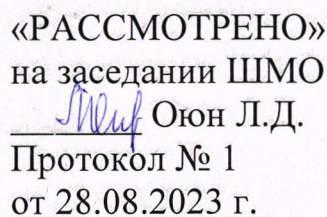 «РАССМОТРЕНО»
на заседании ШМО
Оюн Л.Д.
Протокол № 1
от 28.08.2023 г.